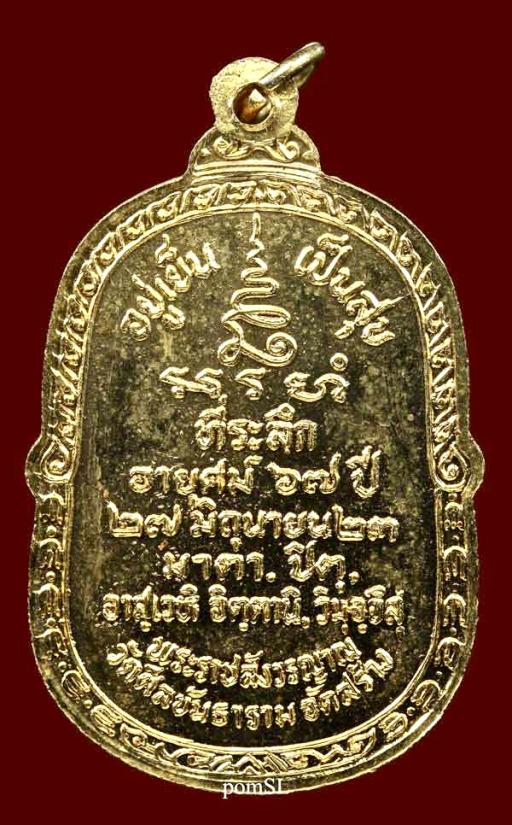 อยู่เย็น เป็นสุข
ที่ระลึก
อายุศม์ ๖๗ ปี
๒๗ มิถุนายน๒๓
มาตา. ปิตุ.
จิตฺตานิ วิมุจฺจึสุ
พระราชสังวรญาณ
วัดศีลขันธาราม จัดสร้าง
pomSL